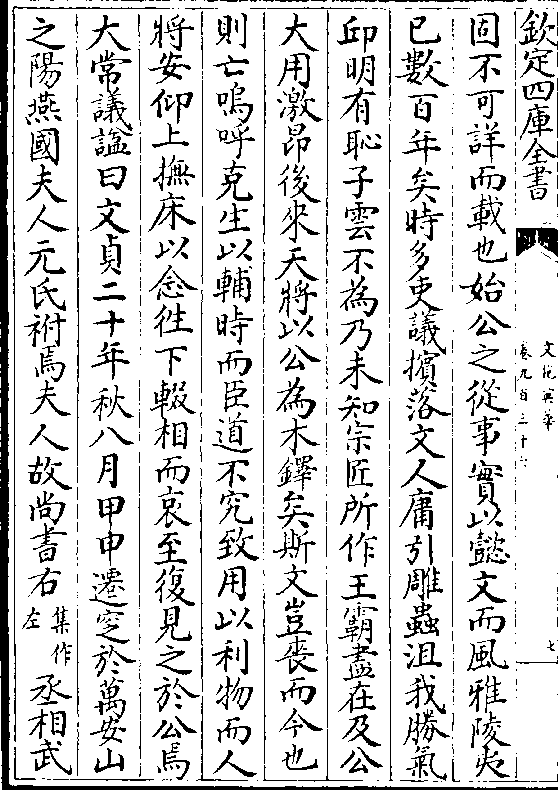 欽定四庫全書
文苑英華
卷九百三十六
七
固不可詳而載也始公之從事實以懿文而風雅陵夷
已數百年矣時多吏議擯落文人庸引雕蟲沮我勝氣
邱明有恥子雲不為乃未知宗匠所作王霸盡在及公
大用激昂後來天將以公為木鐸矣斯文豈喪而今也
則亡嗚呼克生以輔時而臣道不究致用以利物而人
將安仰上撫床以念徃下輟相而哀至復見之於公焉
大常議諡曰文貞二十年秋八月甲申遷窆於萬安山
之陽燕國夫人元氏祔焉夫人故尚書右集作左丞相武